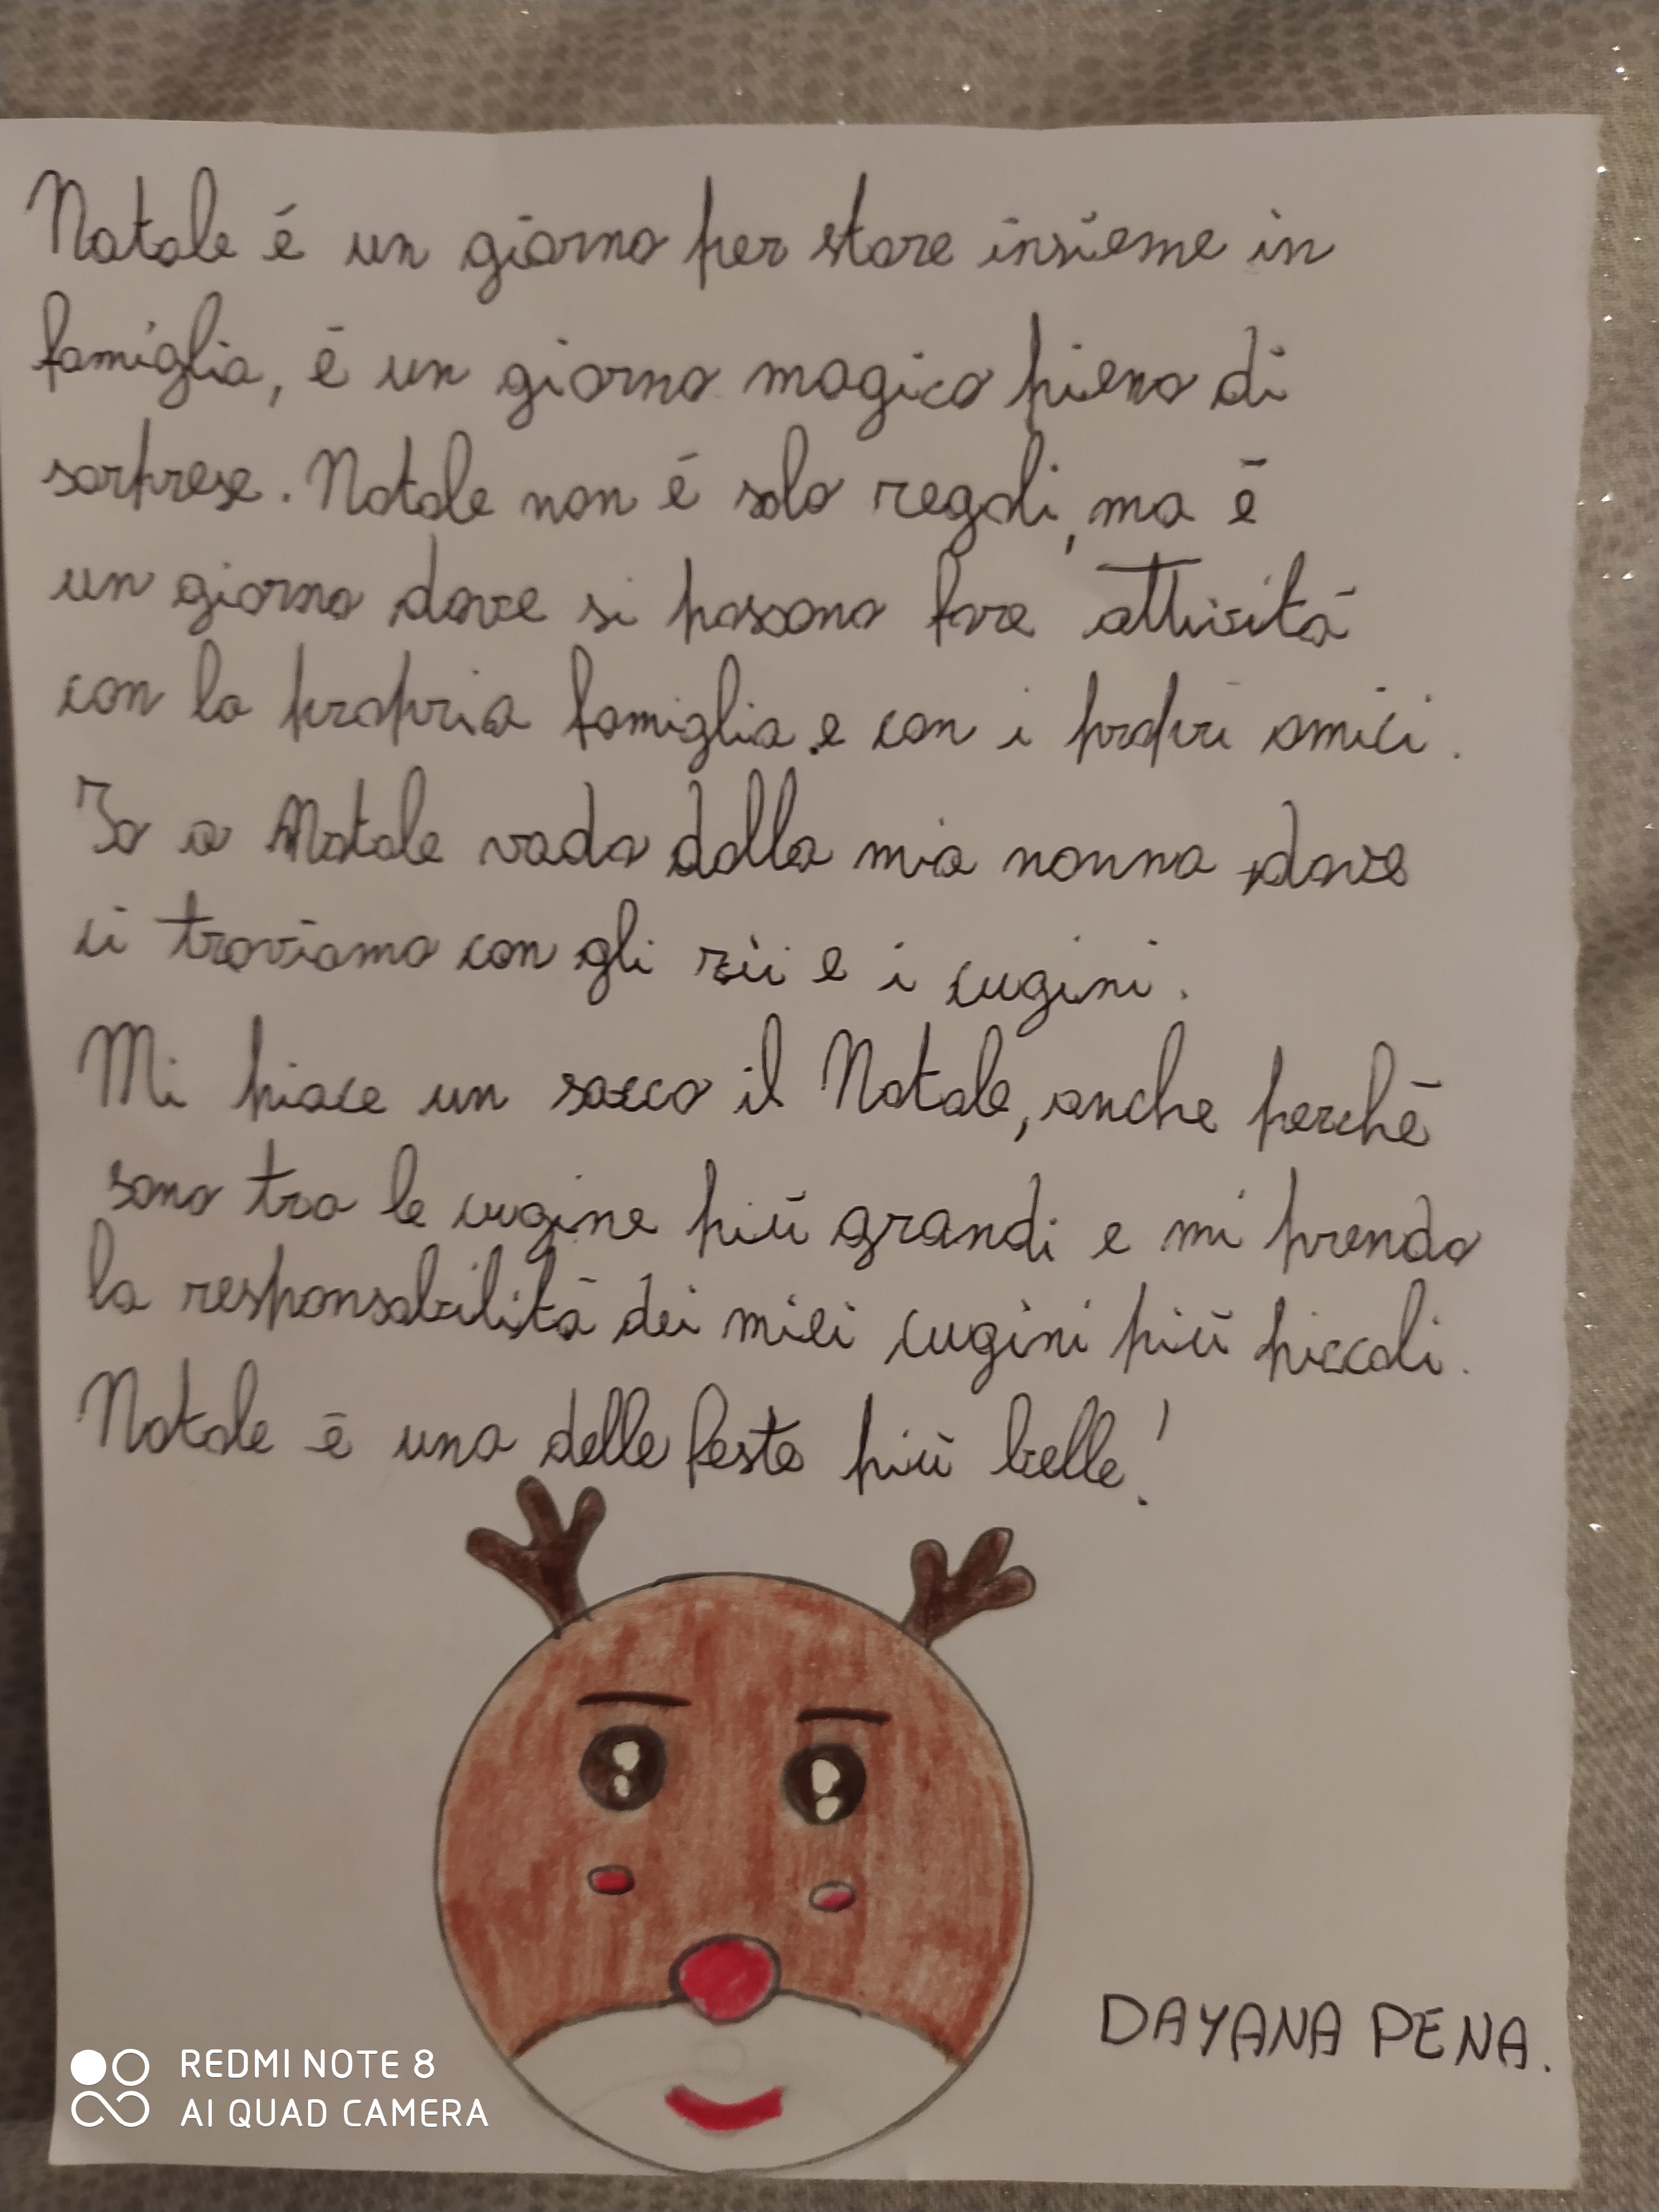 Natale é un giorno per stare insieme in
famiglia, é un giorno magico pieno di
sorprese. Natale non é solo regali, ma é
un giorno dove si possono fare attivitá
con la propria famiglia e con i propri amici.
Io a Natale vado dalla mia nonna dove
ci troviamo con gli zii e i cugini.
Mi piace un sacco il Natale, anche perché
sono tra le cugine piú grandi e mi prendo
la responsabilitá dei miei cugini piú piccoli.
Natale é una delle feste piú belle!
DAYANA PENA.
REDMI NOTE 8
AI QUAD CAMERA